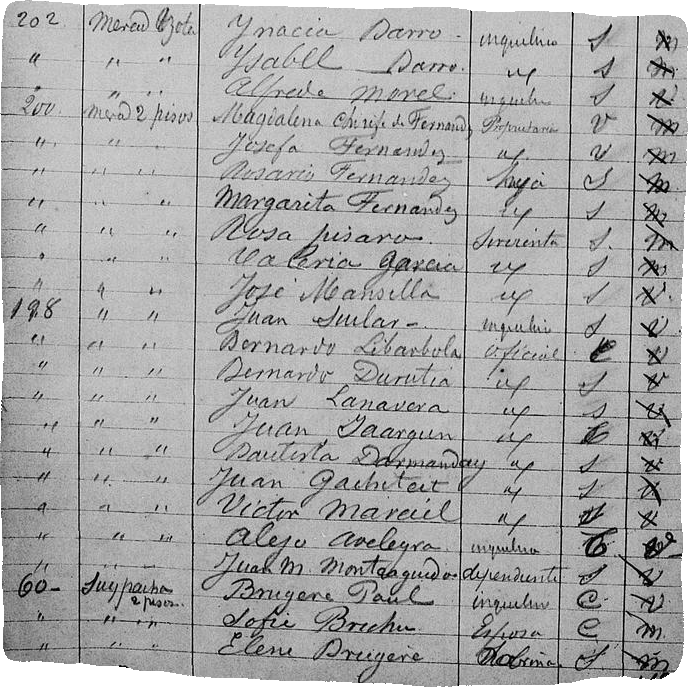 202. Merced Ynacia Darro. inquilino S m
" " " Ysabel Darro. " S m
" " " Alfredo Morel. inquilino S v
200. merced 2 pisos Magdalena de Fernandez Propietaria V m
" " " Josefa Fernandez " v m
" " " Rosario Fernandez hija S m
" " " Margarita Fernandez " S m
" " " Rosa pisaro. Sirvienta S. m
" " " Valeria Garcia " S m
" " " José Mansilla " S v.
198 " " Juan inquilino S v
" " " Bernardo Libarbola oficial C v
" " " Bernardo Durutia " S v
" " " Juan Lanavera " S v
" " " Juan " C v
" " " Bautista " S v
" " " Juan Gachiteit " S v
" " " Victor Marciel " S v
" " " Alejo Aveleyra. inquilino C v
" Juan M. dependiente S v
60- Suypacha 2 pisos. Brugere Paul inquilino C v
" " " Sofie Esposa C m.
" " " Elene Brugere Sobrina. S. m